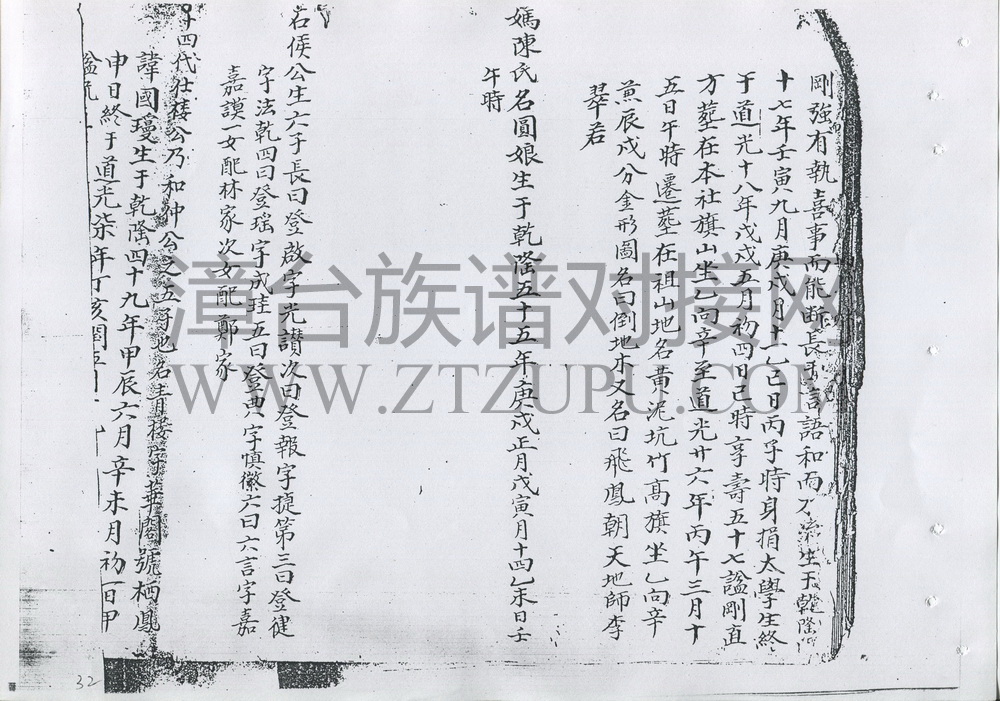 剛強有執喜事而能斷長于言語和而不流生于乾隆四
十七年壬寅九月庚戌月十一乙巳日丙子時身捐太學生終
于道光十八年戊戌五月初四日巳時享壽五十七謚剛直
方葬在本社旗山坐乙向辛至道光廿六年丙午三月十
五日午時遷葬在祖山地名黄泥坑竹高旗坐乙向辛
兼辰戌分金形圖名曰倒地木又名曰飛鳳朝天地師李
翠若
媽陳氏名圓娘生于乾隆五十五年庚戌正月戊寅月十四乙未日壬
午時
石侯公生六子長曰登啟字光讃次曰登報字捷第三曰登健
字法乾四曰登瑶字成珪五曰登典字慎徽六曰六言字嘉
嘉謨一女配林家次女配鄭家
十四代壯接公乃和仲公之五子也名生接字華閣號栖鳳
諱國瓊生于乾隆四十九年甲辰六月辛未月初一日甲
申日終于道光柒年丁亥閏五
謚
漳台族谱对接网
WWW.ZTZUPU.COM
32